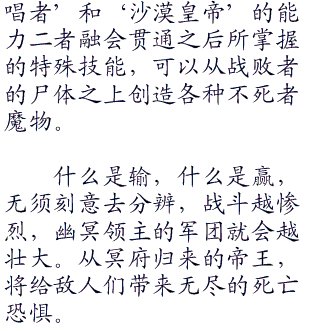 唱者’和‘沙漠皇帝’的能
力二者融会贯通之后所掌握
的特殊技能，可以从战败者
的尸体之上创造各种不死者
魔物。
什么是输，什么是赢，
无须刻意去分辨，战斗越惨
烈，幽冥领主的军团就会越
壮大。从冥府归来的帝王，
将给敌人们带来无尽的死亡
恐惧。